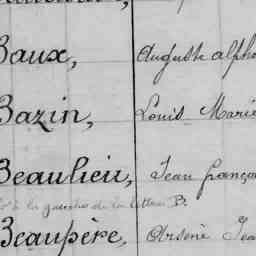 Baux, Auguste alpho
Bazin, Louis Marie
Beaulieu, Jean françoi
à la gauche de la lettre B.
Beaupère, Arsène Jea